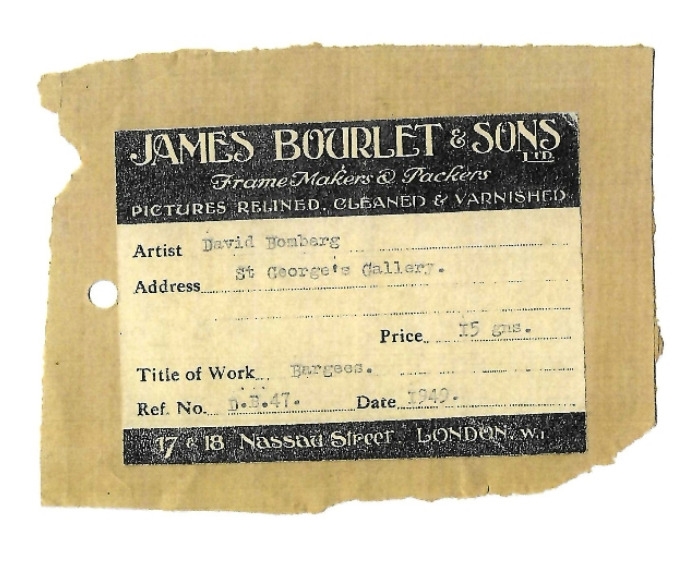 JAMES BOURLET & SONS LTD.
Frame Makers & Packers
PICTURES RELINED, CLEANED & VARNISHED
Artist David Bomberg
Address St George's Gallery.
Price 15 gns.
Title of Work Bargees.
Ref. No. D.B.47. Date 1949.
17 & 18 Nassau Street, LONDON, W.1